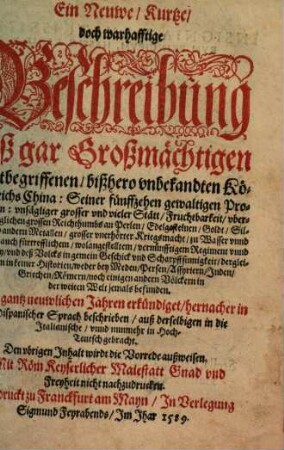 Ein Neuwe / Kurtze /
doch warhafftige
Beschreibung
ß gar Großmächtigen
tbegriffenen / bißhero vnbekandten Kö-
reichs China: Seiner fünffzehen gewaltigen Pro-
en: vnsäglicher grosser vnd vieler Stätt / Fruchtbarkeit / vber-
glichen grossen Reichthumbs an Perlen / Edelgesteinen / Goldt / Sil-
andern Metallen / grosser vnerhörter Kriegsmacht / zu Wasser vnnd
auch fürtrefflichen / wolangestellten / vernünfftigem Regiment vnnd
y / vnd deß Volcks in gemein Geschick vnd Scharpffsinnigkeit / dergleich-
n in keiner Historien / weder bey Meden / Persen / Assyriern / Juden /
Griechen / Römern / noch einigen andern Völckern in
der weiten Welt jemals befunden.
gantz neuwlichen Jahren erkündiget / hernacher in
Hispanischer Sprach beschrieben / auß derselbigen in die
Italianische / vnnd nunmehr in Hoch-
Teutsch gebracht.
Den vbrigen Inhalt wirdt die Vorrede außweisen.
Mit Röm: Keyserlicher Maiestatt Gnad vnd
Freyheit nicht nachzudrucken.
druckt zu Franckfurt am Mayn / In Verlegung
Sigmund Feyrabends / Im Jhar 1589.